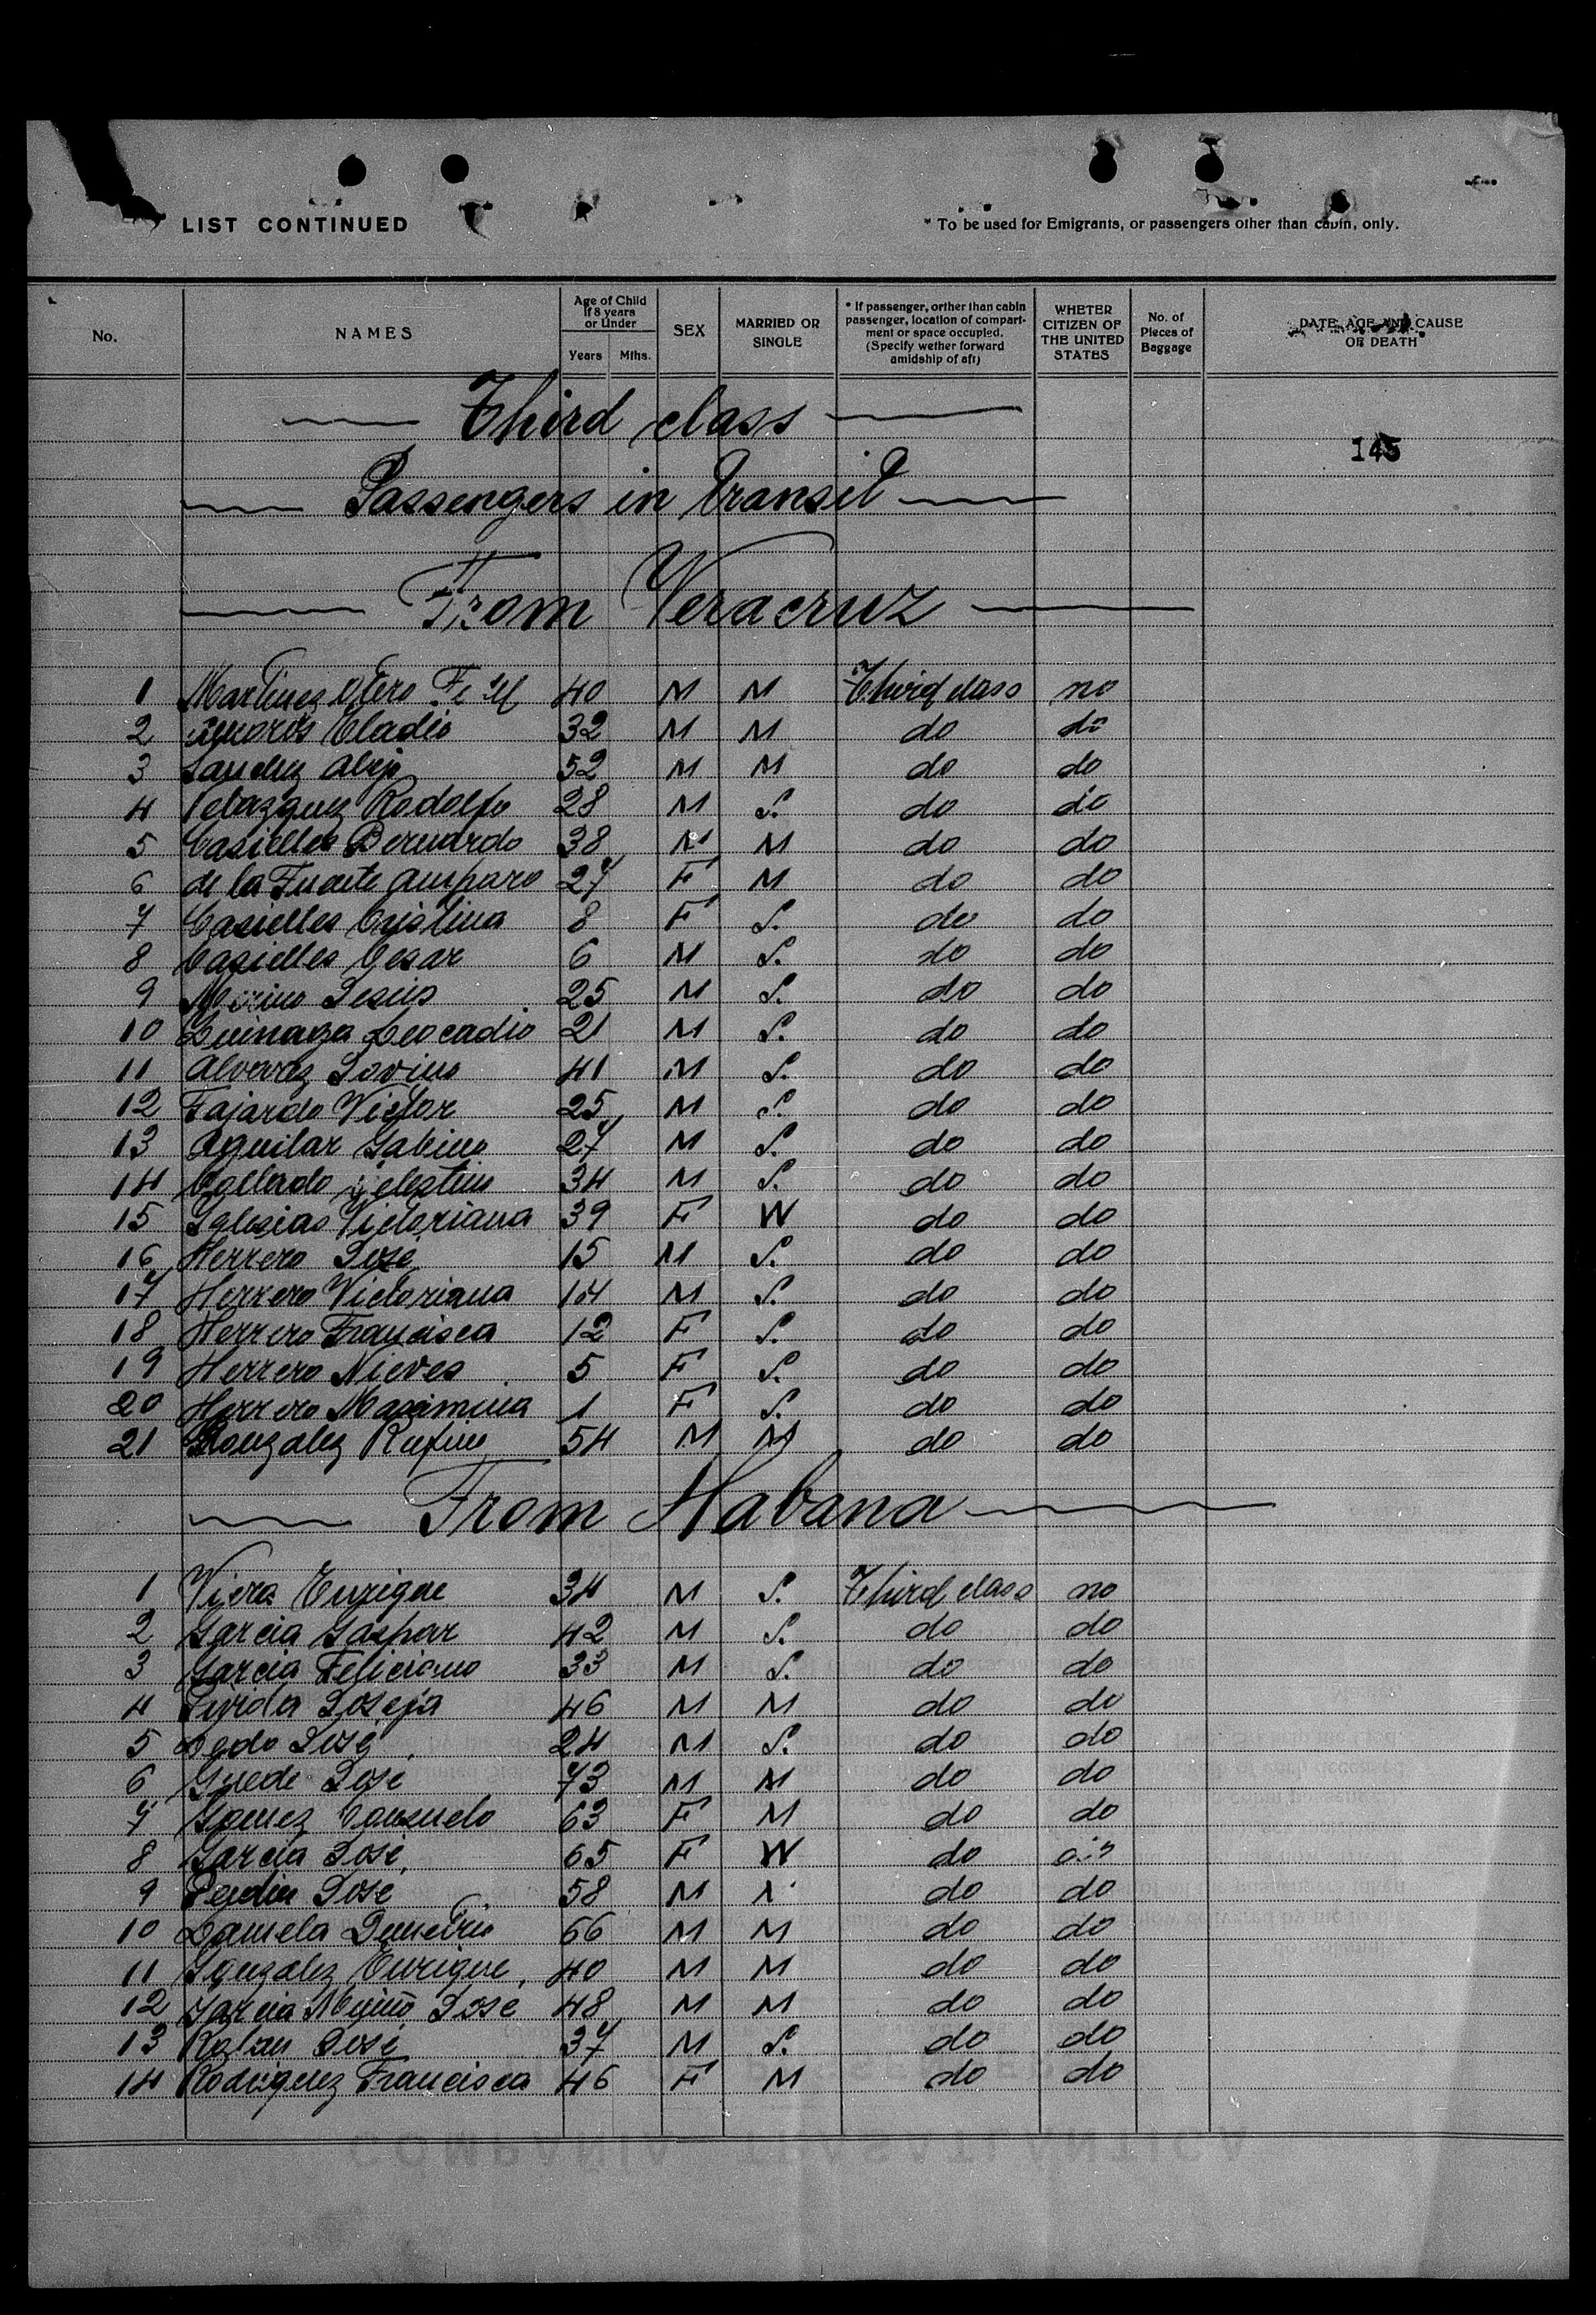 LIST CONTINUED
* To be used for Emigrants, or passengers other than cabin, only.
No.
NAMES
Age of Child if 8 years or Under
Years Mths.
SEX
MARRIED OR SINGLE
* If passenger, orther than cabin passenger, location of compartment or space occupied. (Specify wether forward amidship of aft)
WHETER CITIZEN OF THE UNITED STATES
No. of Pieces of Baggage
DATE, AGE AND CAUSE OF DEATH
Third class
145
Passengers in transit
From Veracruz
1 Martinez Otero 40 M M Third class no
2 Eladio 32 M M do do
3 Sanchez Alejo 52 M M do do
4 Velazquez Rodolfo 28 M S. do do
5 Casielles Bernardo 38 M M do do
6 de la Fuente Amparo 27 F M do do
7 Casielles Cristina 8 F S. do do
8 Casielles Cesar 6 M S. do do
9 Jesus 25 M S. do do
10 Leocadio 21 M S. do do
11 Alvarez 41 M S. do do
12 Fajardo Victor 25 M S. do do
13 Aguilar Sabino 27 M S. do do
14 Collado Celestino 34 M S. do do
15 Iglesias Victoriana 39 F W do do
16 Herrero Jose 15 M S. do do
17 Herrero Victoriana 14 M S. do do
18 Herrero Francisca 12 F S. do do
19 Herrero Nieves 5 F S. do do
20 Herrero Maximina 1 F S. do do
21 Gonzalez Rufino 54 M M do do
From Habana
1 Viera Enrique 34 M S. Third class no
2 Garcia Gaspar 42 M S. do do
3 Garcia Feliciano 33 M S. do do
4 46 M M do do
5 José 24 M S. do do
6 Guede José 73 M M do do
7 Gomez Consuelo 63 F M do do
8 Garcia José 65 F W do do
9 José 58 M do do
10 Demetrio 66 M M do do
11 Gonzalez Enrique 40 M M do do
12 Garcia José 48 M M do do
13 José 37 M S. do do
14 Rodriguez Francisca 46 F M do do